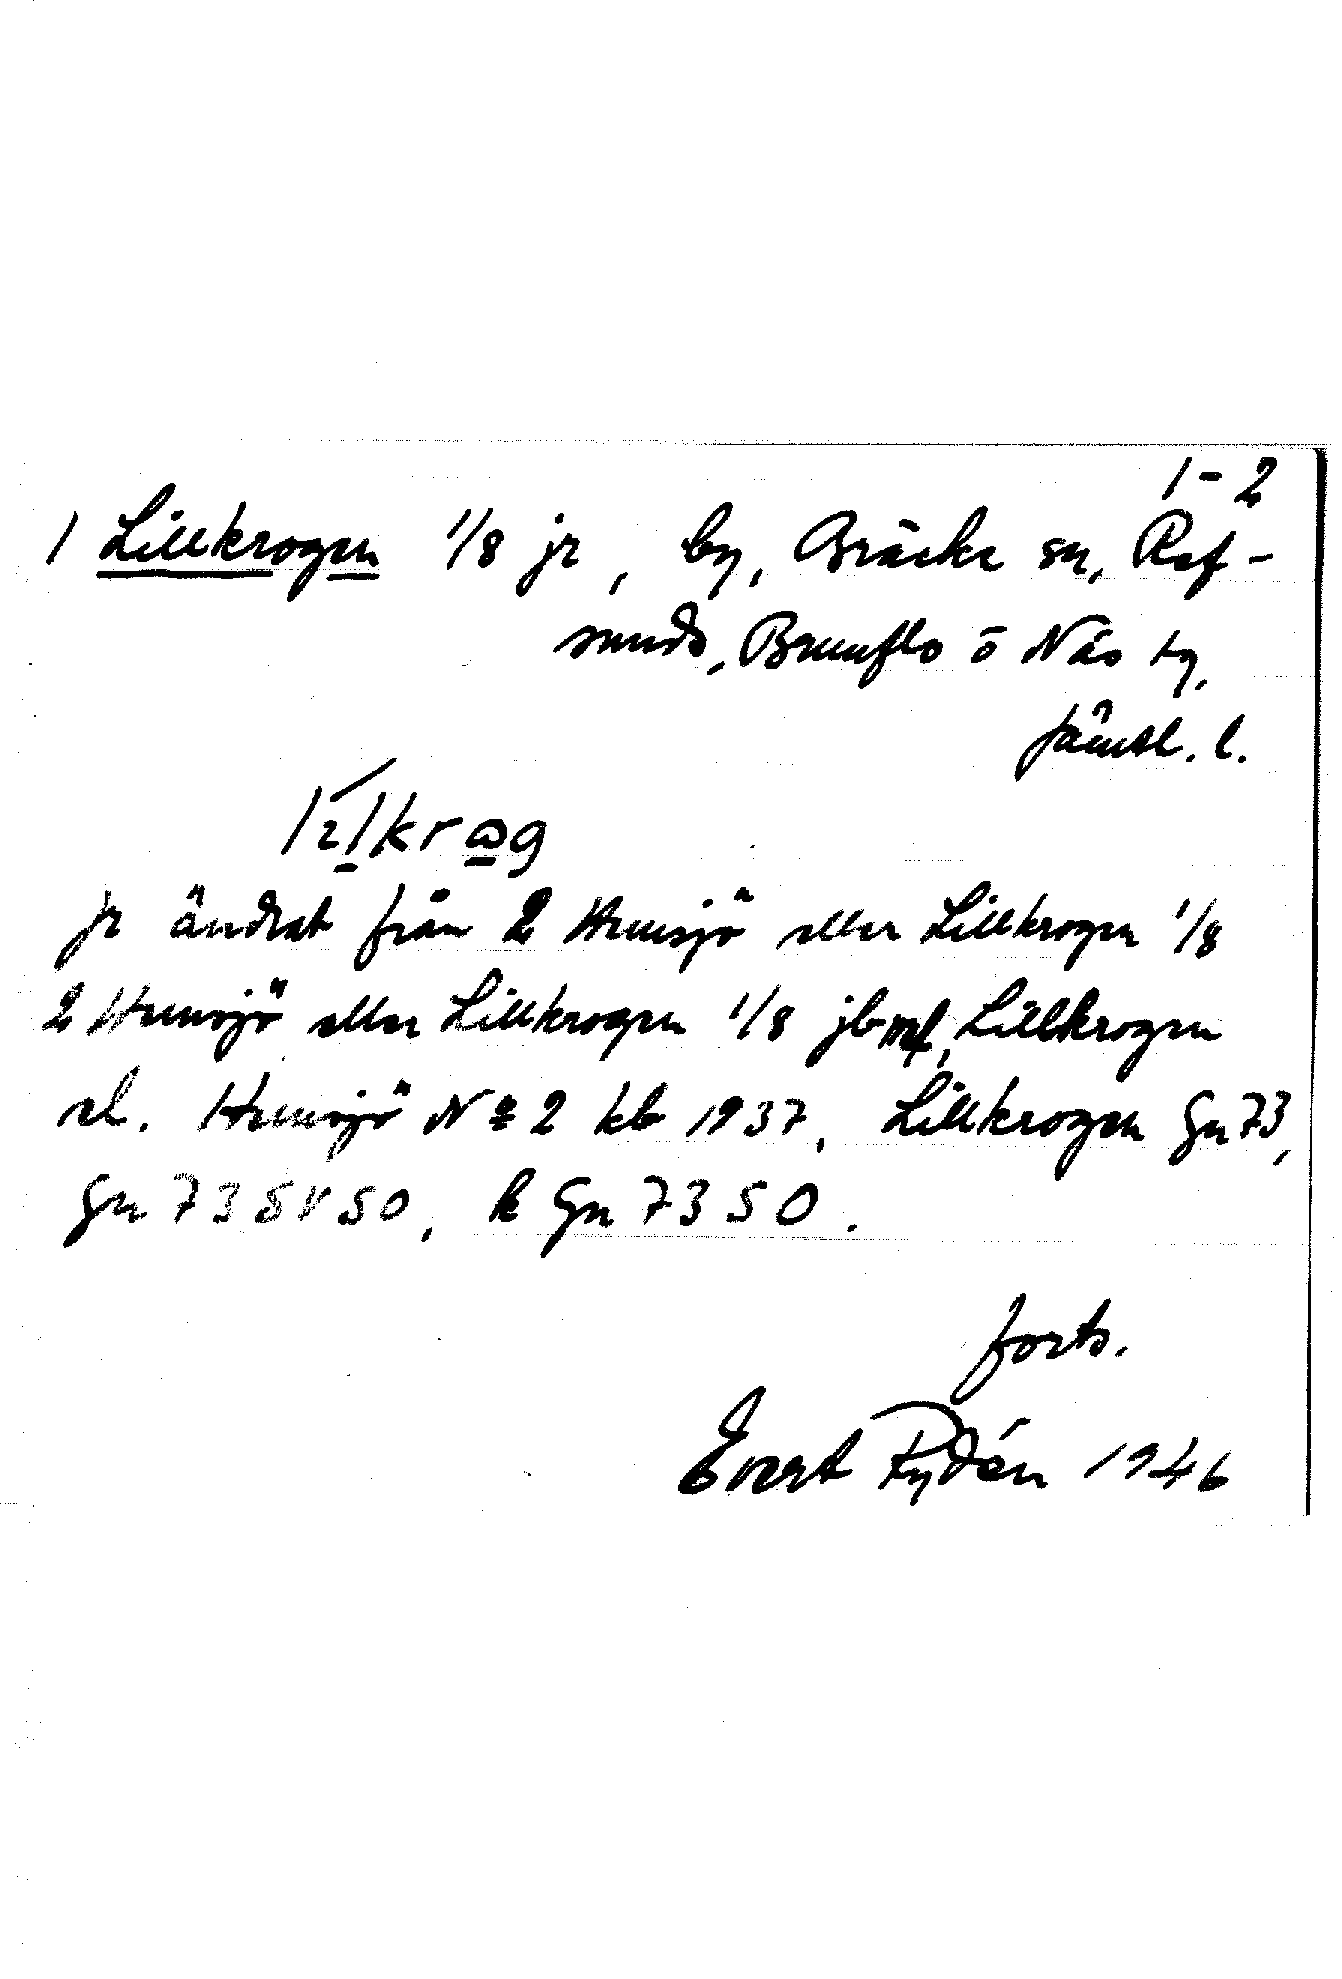 1-2
1 Lillkrogen 1/8 jr, by, Bräcke sn, Ref-
sunds, Brunflo o Näs tg.
Jämtl. l.
jr ändrat från 2 Hunsjö eller Lillkrogen 1/8
2 Hunsjö eller Lillkrogen 1/8 jb mf, Lillkrogen
el. Hunsjö No 2 kb 1937, Lillkrogen Gn 73,
Gn 73 SV SO, k Gn 73 SO.
forts.
Evert Rydén 1946